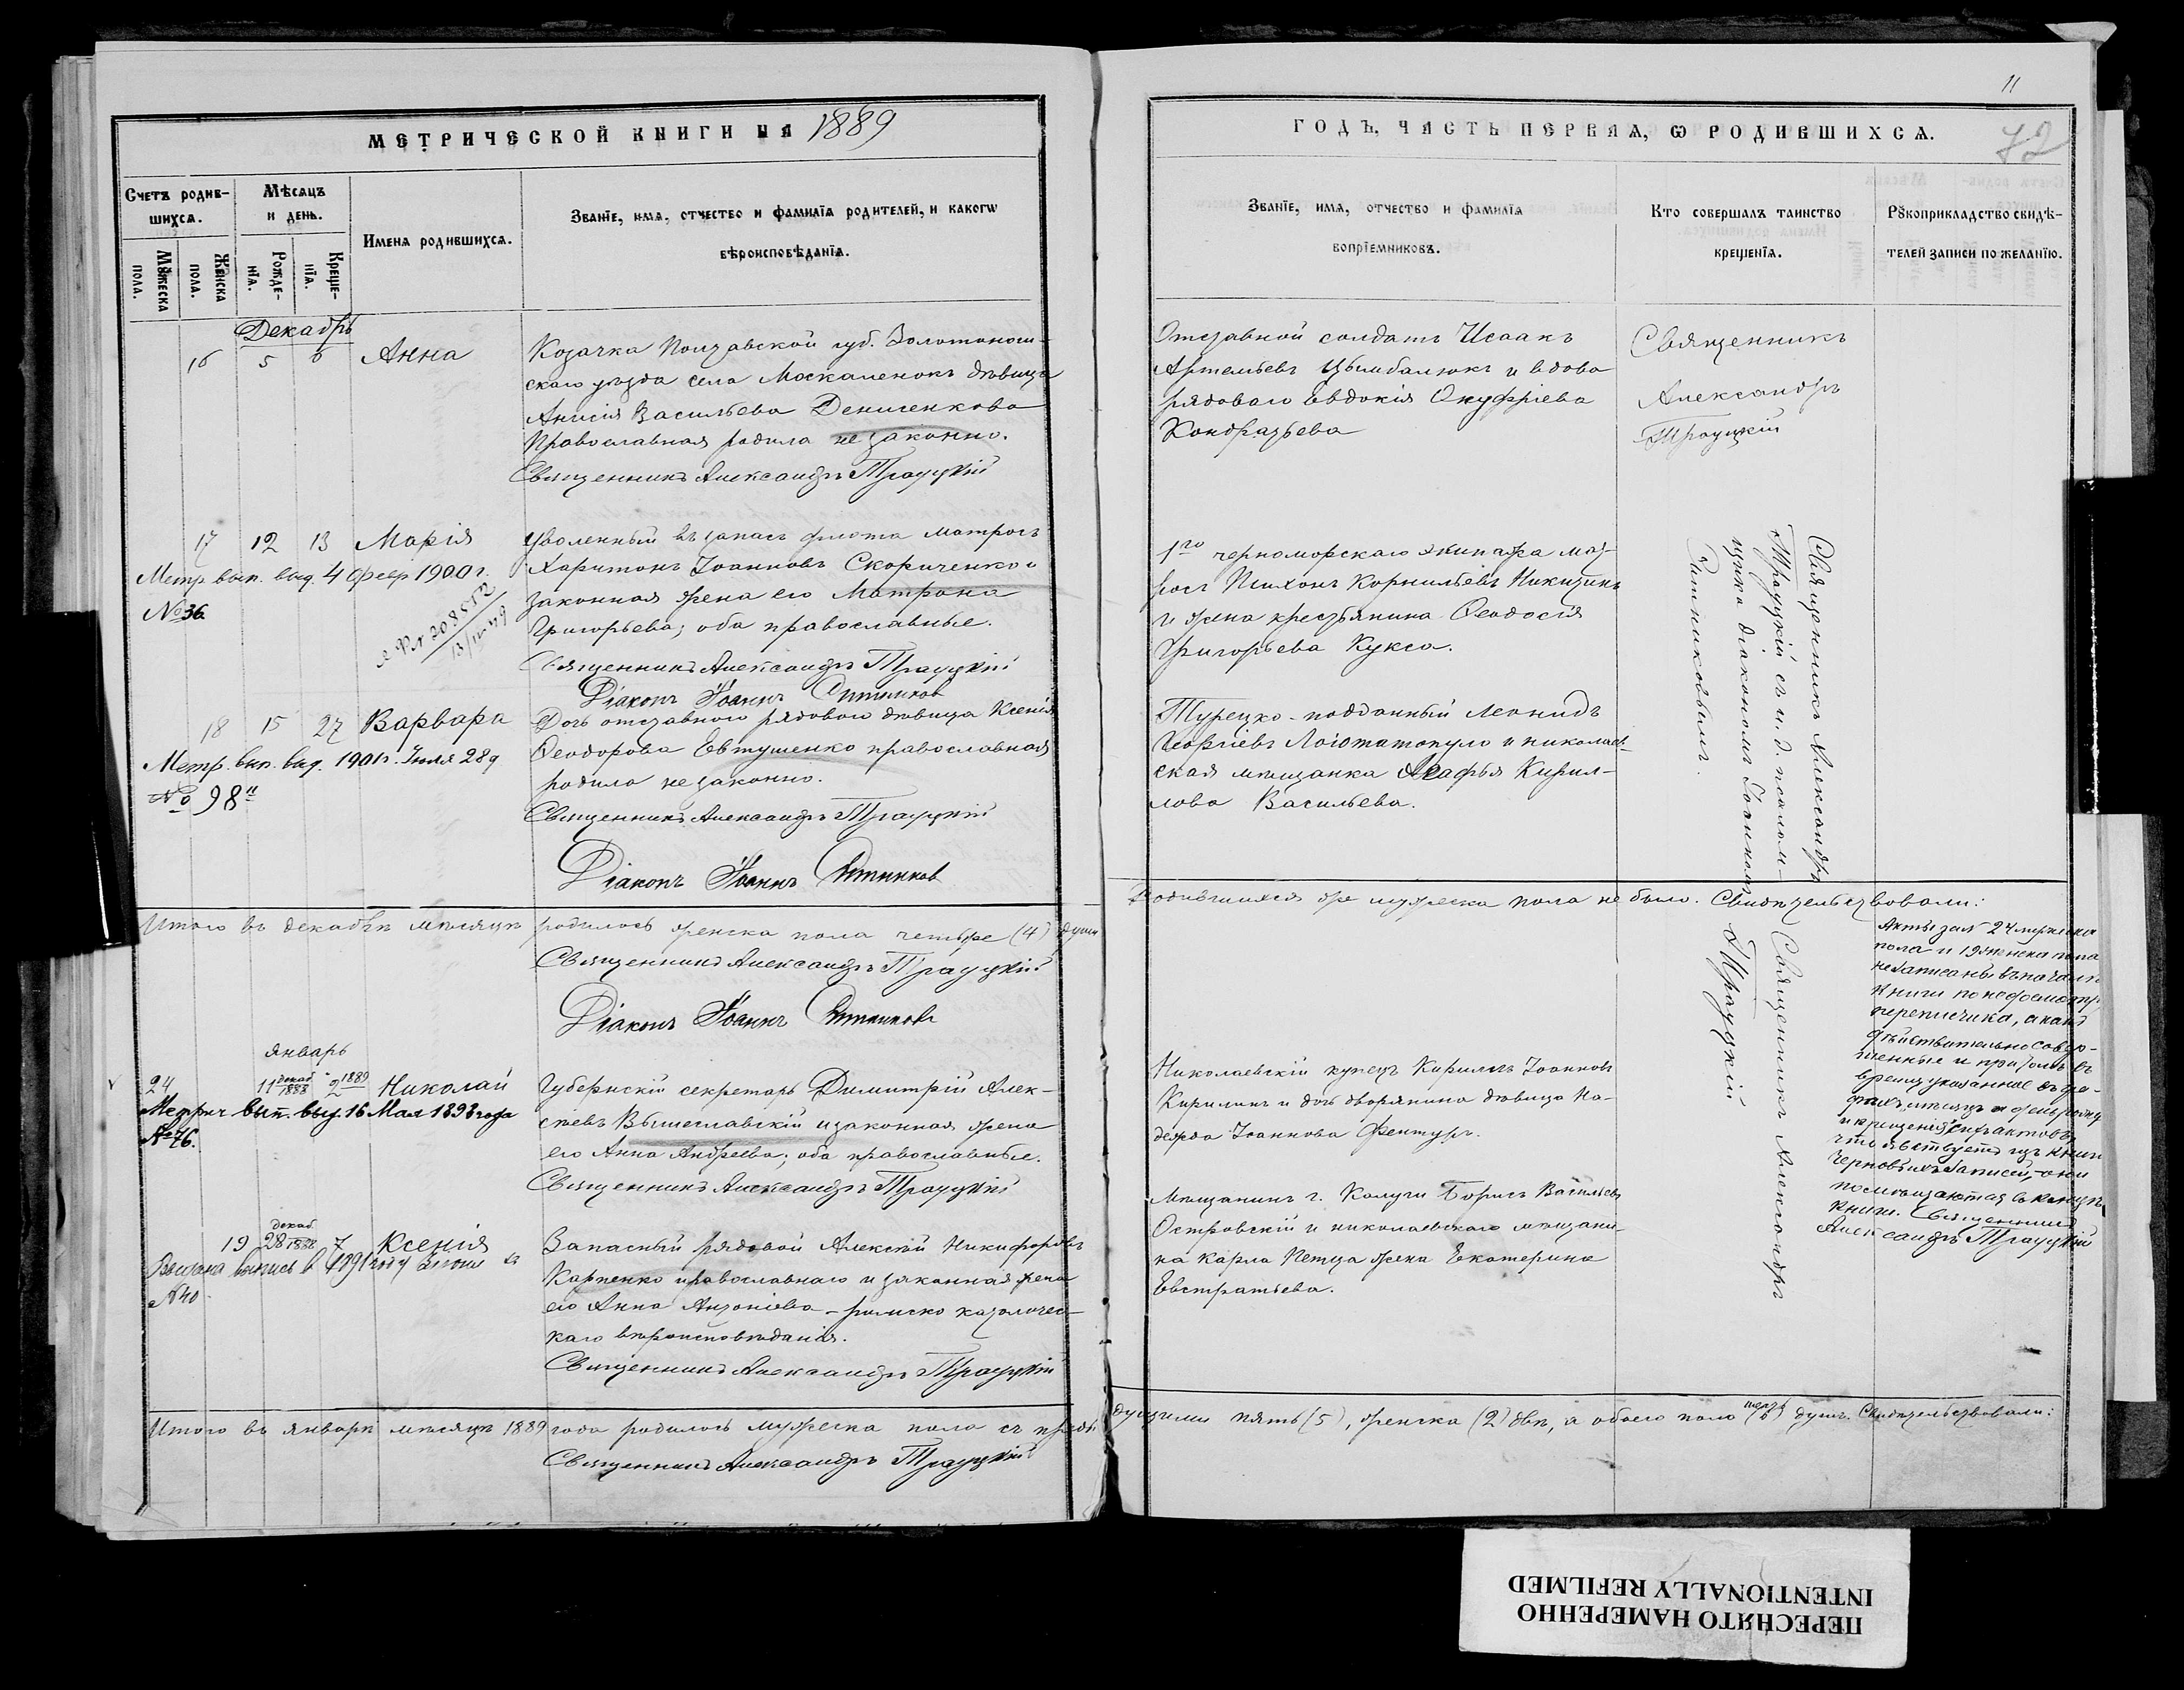 МЕТРИЧЕСКОЙ КНИГИ НА 1889
Счетъ родив-
шихся.
Мѣсяцъ
и день.
Имена родившихся.
Званіе, имя, отчество и фамилія родителей, и какогѡ
вѣроисповѣданія.
Мꙋжеска
пола.
Женска
пола.
Рожде-
нія.
Креще-
нія.
Декабрь
16 5 6 Анна
Козачка Полтавской губ. Золотонош-
скаго уѣзда села Москаленокъ дѣвица
Анисія Васильева Денисенкова
православная родила незаконно.
Священникъ Александръ Трауцкій
17 12 13 Марія
Метр. вып. выд. 4 февр 1900 г.
№ 36
Уволенный въ запасъ флота матросъ
Харитонъ Іоанновъ Скориченко и
законная жена его Матрона
Григорьева; оба православные.
Священникъ Александръ Трауцкій
Діаконъ Іоаннъ Ситников
18 15 27 Варвара
Метр. вып. выд. 1901 г. Іюля 28 д
№ 98
Дочь отставного рядового дѣвица Ксенія
Ѳеодорова Евтушенко православная
родила незаконно.
Священникъ Александръ Трауцкій
Діаконъ Іоаннъ Ситников
Итого въ декабрѣ мѣсяцѣ родилось женска пола четыре (4) души
Священникъ Александръ Трауцкій
Діаконъ Іоаннъ Ситниковъ
январь
24 11 декаб 1888 2 1889 Николай
Метрич вып. выд. 16 Мая 1898 года
№ 76.
Губернскій секретарь Димитрій Алек-
сѣевъ Вышеславскій и законная жена
его Анна Андреева; оба православные.
Священникъ Александръ Трауцкій
19 28 декаб. 1888 7 Ксенія
Выдана выпись в 1891 году
№ 40
Запасный рядовой Алексѣй Никифоровъ
Карпенко православнаго и законная жена
его Анна Антоніева - римско католичес-
каго вѣроисповѣданія.
Священникъ Александръ Трауцкій
Итого въ январѣ мѣсяцѣ 1889 года родилось мужеска пола съ преды
Священникъ Александръ Трауцкій
11
72
ГОДЪ, ЧАСТЬ ПЕРВАЯ, Ѡ РОДИВШИХСЯ.
Званіе, имя, отчество и фамилія
вопріемниковъ.
Кто совершалъ таинство
крещенія.
Рꙋкоприкладство свидѣ-
телей записи по желанію.
Отставной солдатъ Исаакъ
Артемьевъ Цымбалюкъ и вдова
рядоваго Евдокія Онуфріева
Кондратьева
Священникъ
Александръ
Трауцкій
1го черноморскаго экипажа мат-
росъ Тихонъ Корнильевъ Никитинъ
и жена крестьянина Ѳеодосія
Григорьева Кукса.
Турецко-подданный Леонидъ
Георгіевъ Логотатопуло и николаев-
ская мѣщанка Агафья Кирил-
лова Васильева.
Священникъ Александръ
Трауцкій съ и. д. псалом-
щика діакономъ Іоанномъ
Ситниковымъ.
Родившихся же мужеска пола не было. Свидѣтельствовали:
Священникъ Александръ
Трауцкій
Николаевскій купецъ Кириллъ Іоанновъ
Кирилинъ и дочь дворянина дѣвица На-
дежда Іоаннова Фентуръ.
Мѣщанинъ г. Калуги Борисъ Васильевъ
Островскій и николаевскаго мѣщани-
на Карла Петца жена Екатерина
Евстратьева.
Акты за № 24 мужеска
пола и 19 женска пола
не записаны въ началѣ
книги по недосмотру
переписчика, а какъ
дѣйствительно совер-
шенные и притомъ въ
время указанное въ гра-
фахъ мѣсяцъ и день рожд
и крещенія сихъ актовъ,
что явствуетъ изъ книги
черновыхъ записей, - они
помѣщаются въ концѣ
книги. Священникъ
Александръ Трауцкій
дущими пять (5), женска (2) двѣ, а обоего пола (6) душъ. Свидѣтельствовали:
ПЕРЕСНЯТО НАМЕРЕННО
INTENTIONALLY REFILMED